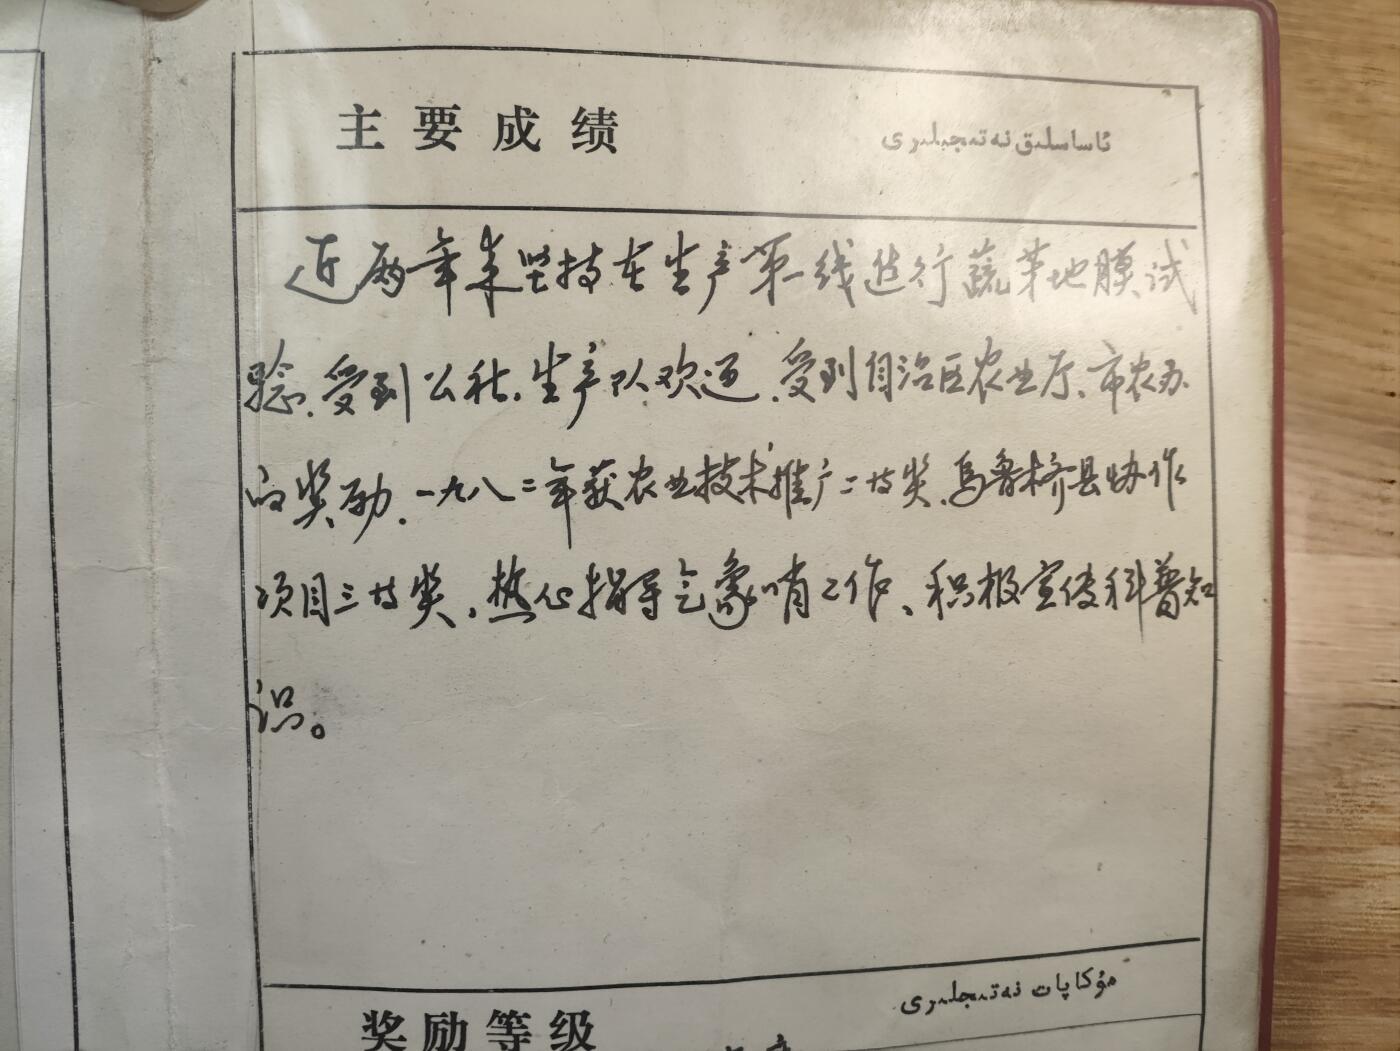 主要成绩 ئاساسلىق نەتىجىلىرى
近两年来坚持在生产第一线进行蔬菜地膜试
验、受到公社、生产队欢迎、受到自治区农业厅、市农办
的奖励.一九八二年获农业技术推广二等奖、乌鲁木齐县协作
项目三等奖,热心指导气象哨工作、积极宣传科普知
识。
奖励等级 مۇكاپات نەتىجىلىرى